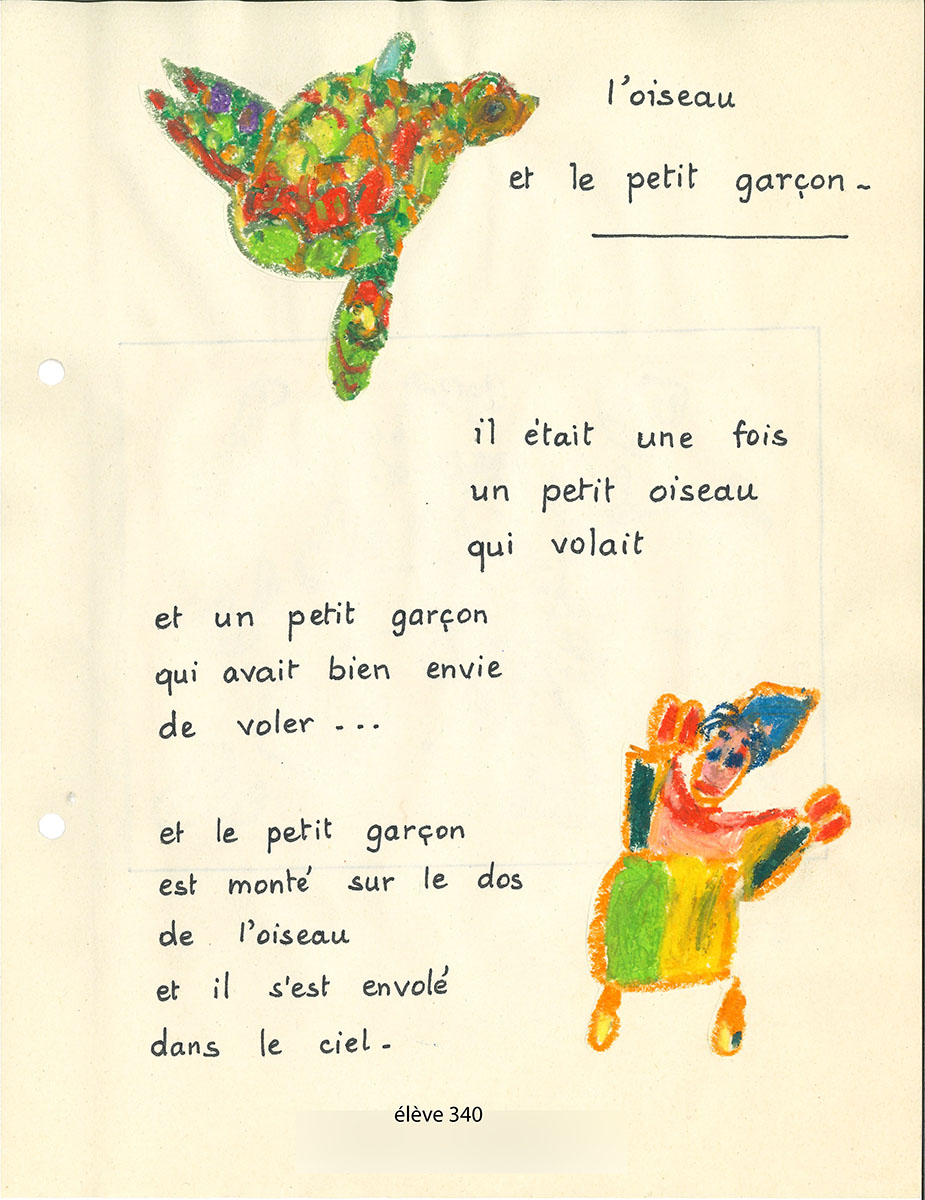 l'oiseau
et le petit garçon ~
il était une fois
un petit oiseau
qui volait
et un petit garçon
qui avait bien envie
de voler ...
et le petit garçon
est monté sur le dos
de l'oiseau
et il s'est envolé
dans le ciel.
élève 340